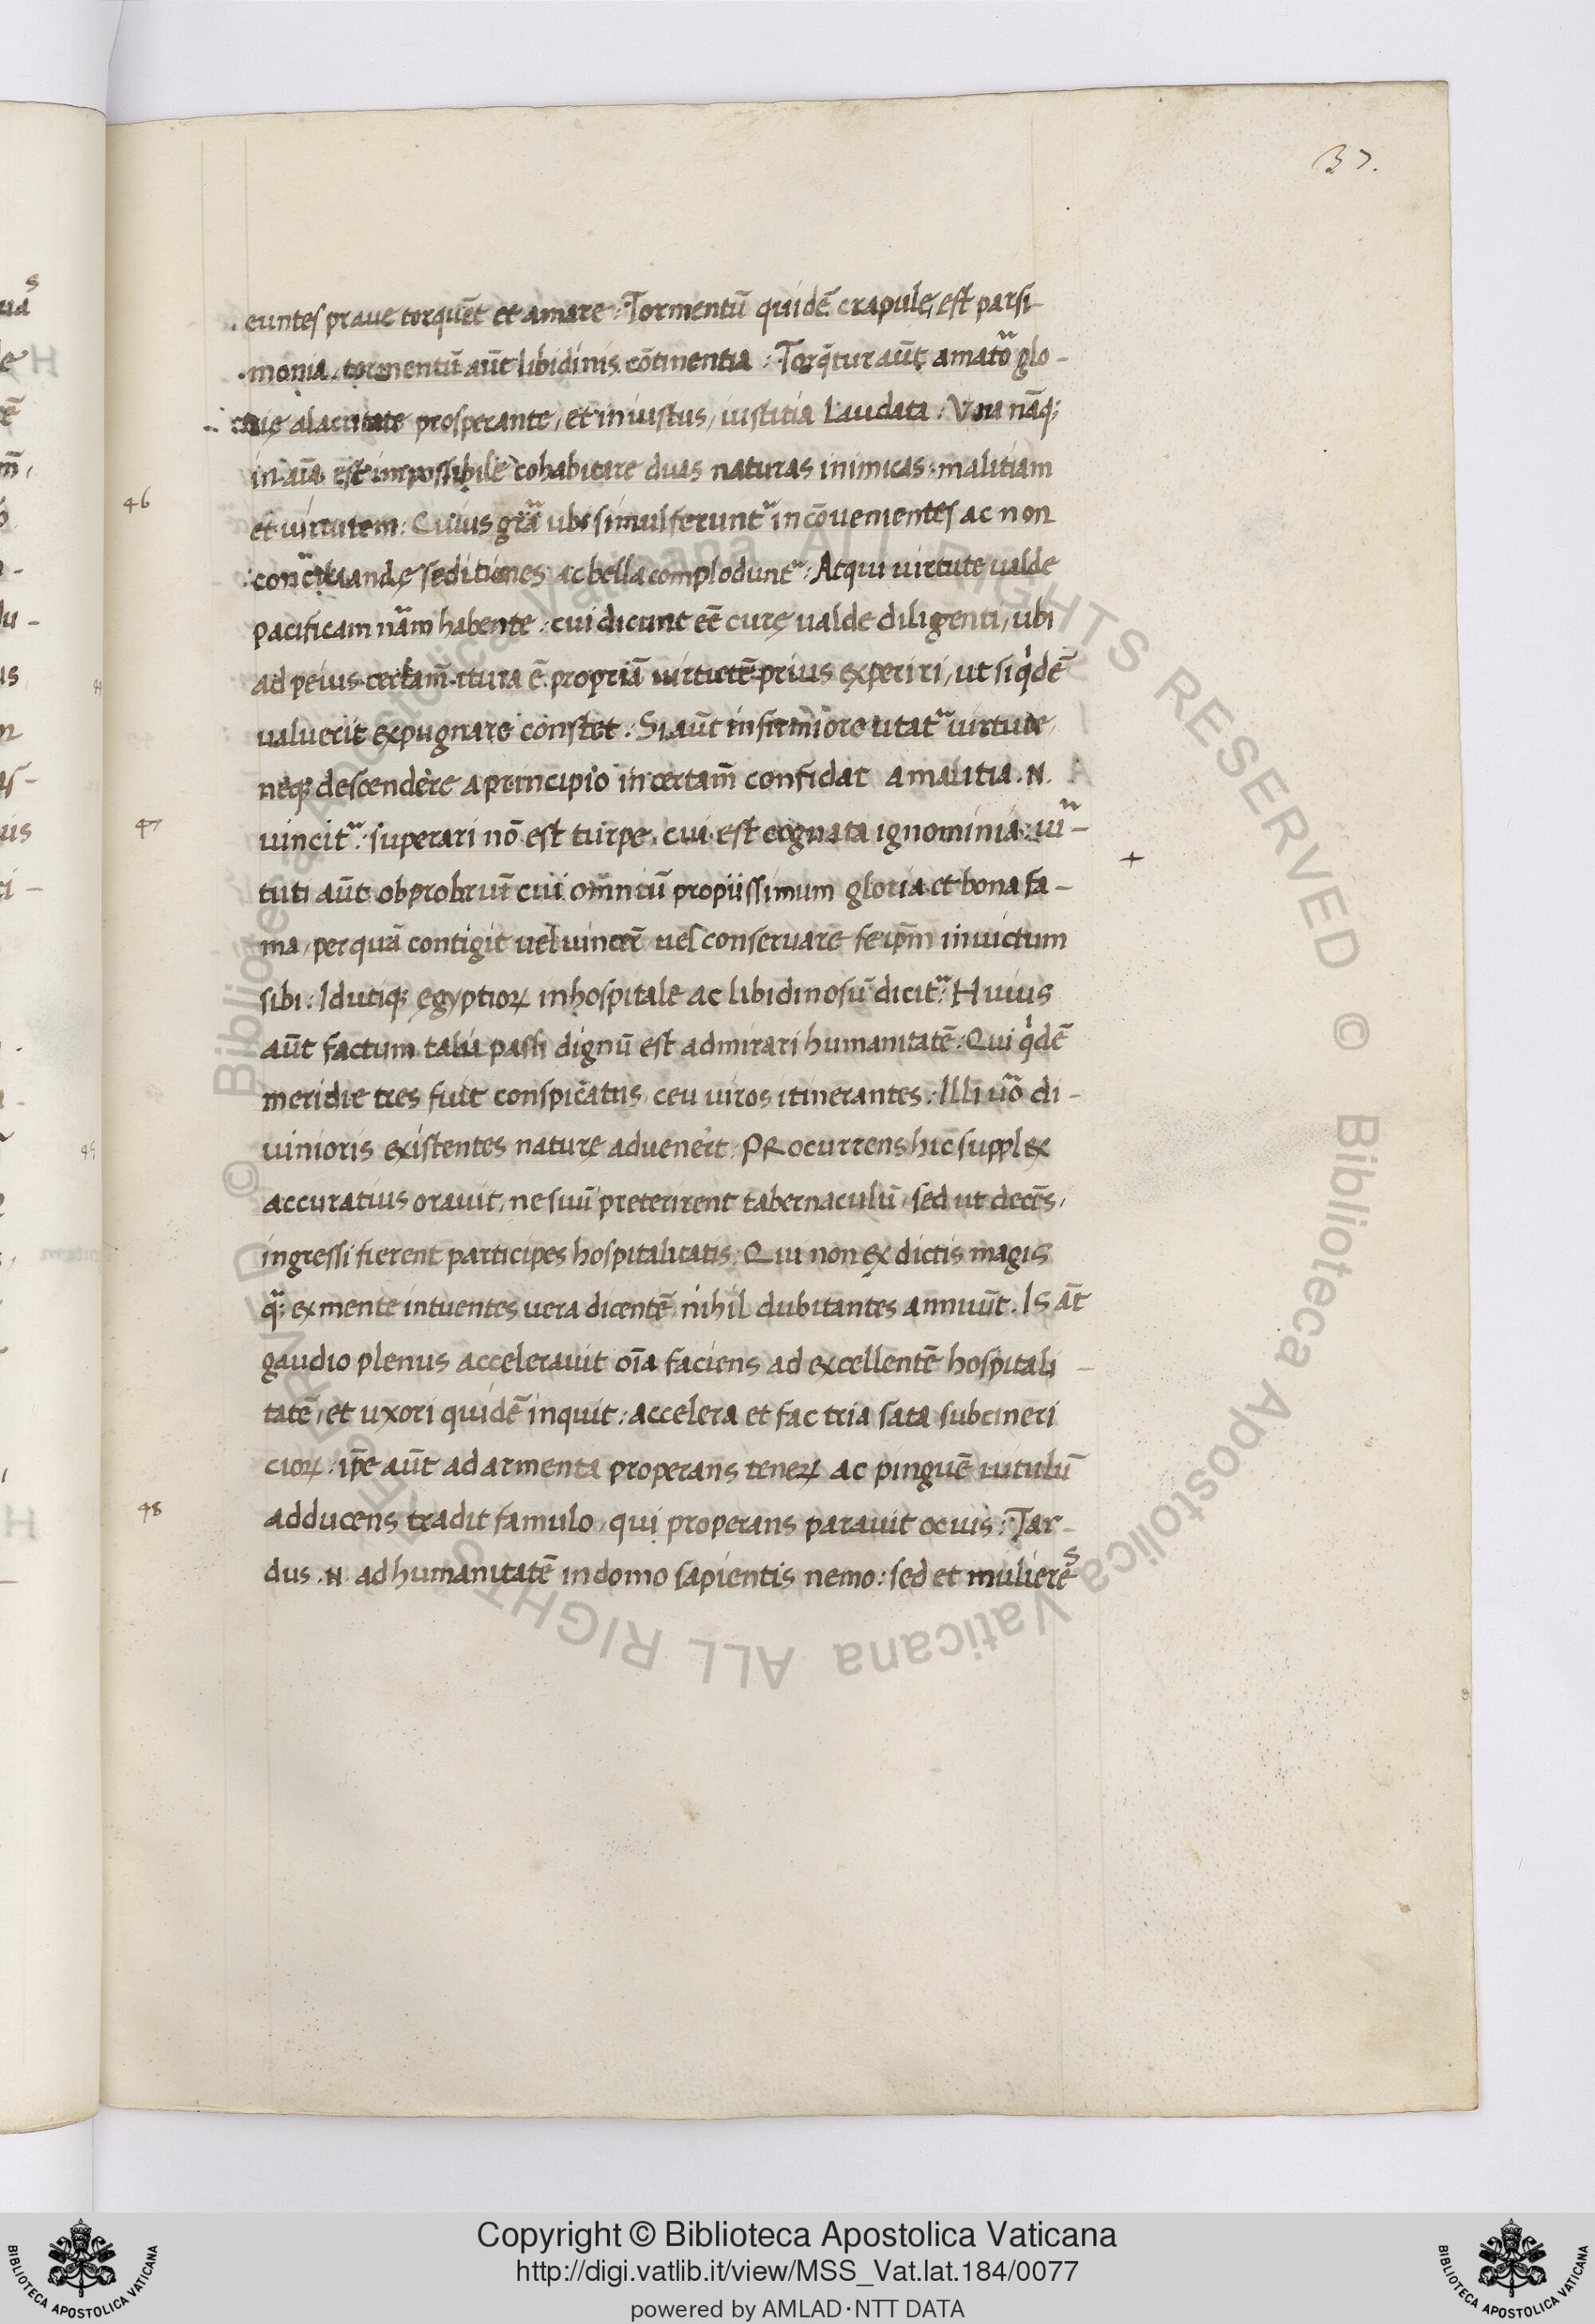 37.
euntes praue torquēt et amare : Tormentū quidē crapulę est parsi-
monia, tormentū aūt libidinis cōtinentia : Torq̄tur aūt amator glo-
rię alacritate prosperante, et iniustus, iusticia laudata : Vna nāq;
in aīa est impossibile cohabitare duas naturas inimicas : malitiam
46
et uirtutem : Cuius grā ubi simul feruntr incōuenientes ac non
concruandę seditiones ac bella complodunt : Atqui uirtute ualde
pacificam nām habente : cui dicunt eē curę ualde diligenti, ubi
ad peius certam̄ itura ē propriā uirtutē prius experiri, ut siq̇dē
ualuerit expugnare constet : Si aūt infirmiore utat uirtute,
neq; descendere a principio in certam̄ confidat a malitia .N.
47
uincit superari nō est turpe, cui est cognata ignominia : uir-
tuti aūt obprobriū cui omniū propiissimum gloria et bona fa-
ma, per quā contigit uel uincere uel conseruare seip̄m inuictum
sibi : Id utiq; ęgyptioꝝ inhospitale ac libidinosū dicit : Huius
aūt factum talia passi dignū est admirari humanitatē : Qui q̇dē
meridie tres fuit conspicatus ceu uiros itinerantes : Illi uō di-
uinioris existentes naturę aduenert : PRocurrens hic supplex
accuratius orauit, ne suū preterirent tabernaculū, sed ut decēs,
ingressi fierent participes hospitalitatis : Qui non ex dictis magis
q; ex mente intuentes uera dicentē nihil dubitantes annuūt. IS āt
gaudio plenus accelerauit oīa faciens ad excellentē hospitali-
tatē, et uxori quidē inquit : accelera et fac tria sata subcineri
cioꝝ : ip̄e aūt ad armenta properans teneꝝ ac pinguē uitulū
48
adducens tradit famulo, qui properans parauit ocius : Tar-
dus .N. ad humanitatē in domo sapientis nemo : sed et mulieres
Copyright © Biblioteca Apostolica Vaticana
http://digi.vatlib.it/view/MSS_Vat.lat.184/0077
powered by AMLAD·NTT DATA